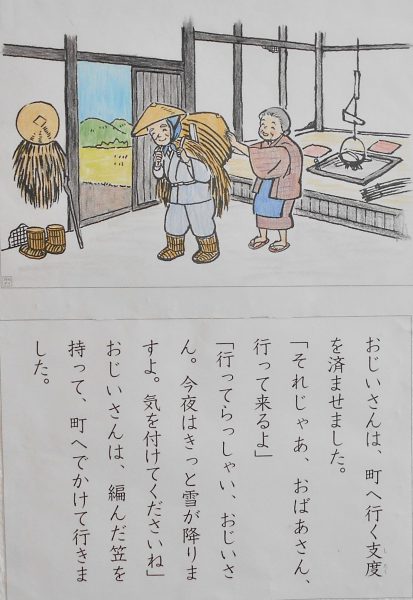 おじいさんは、町へ行く支度
を済ませました。
「それじゃあ、おばあさん、
行って来るよ」
「行ってらっしゃい、おじいさ
ん。今夜はきっと雪が降りま
すよ。気を付けてくださいね」
おじいさんは、編んだ笠を
持って、町へでかけて行きま
した。